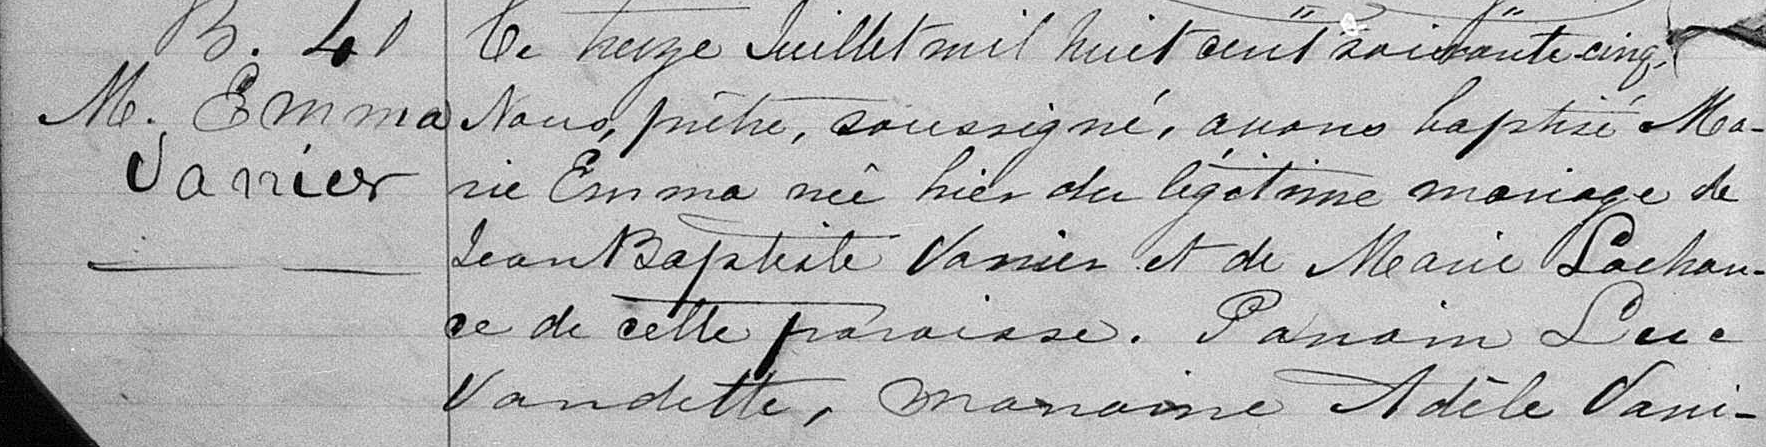 B. 41
M. Emma
Vanier
Ce treize Juillet mil huit cent soixante-cinq,
Nous, prêtre, soussigné, avons baptisé Ma-
rie Emma née hier du légitime mariage de
Jean Baptiste Vanier et de Marie Lachan-
ce de cette paroisse. Parrain Luc
Vandette, marraine Adèle Vani-